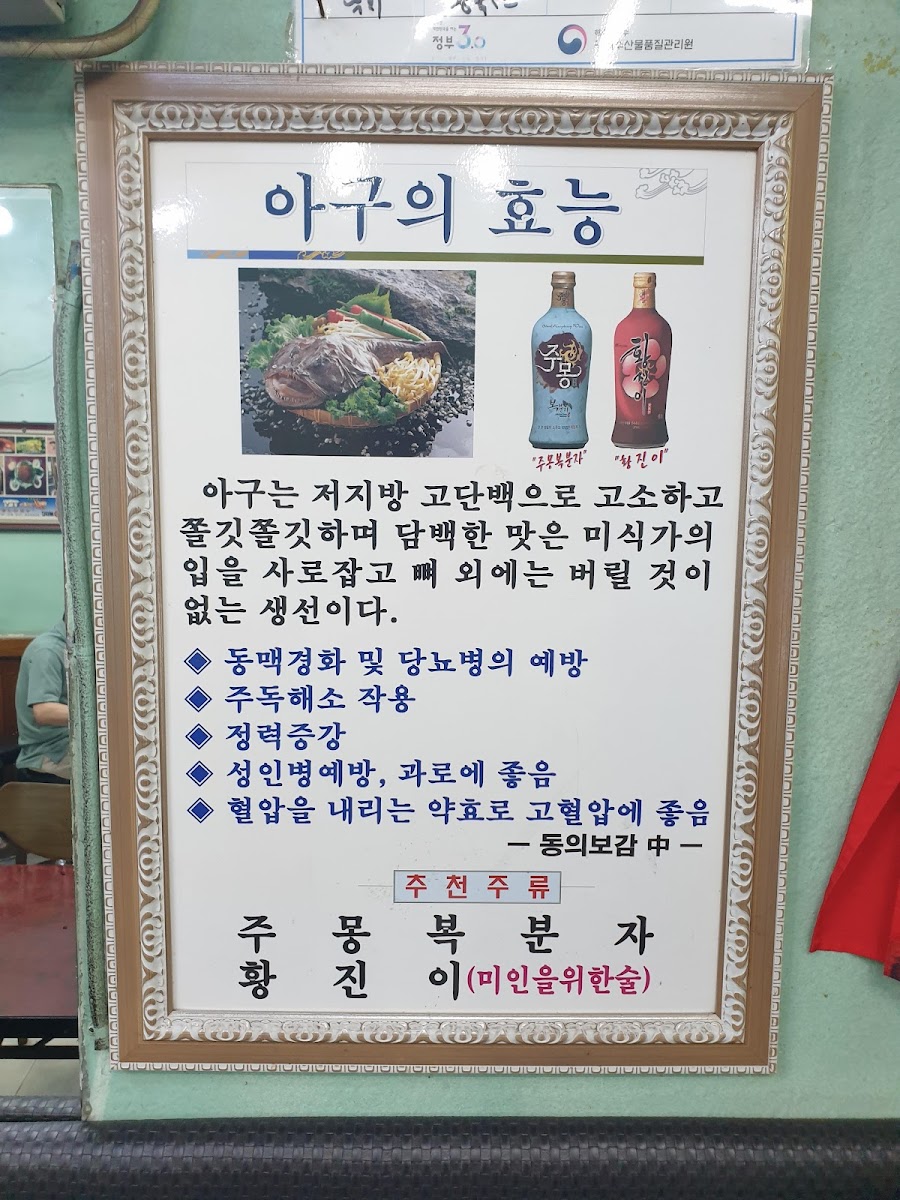 정부3.0
수산물품질관리원
아구의 효능
주몽
황진이
"주몽복분자" "황진이"
아구는 저지방 고단백으로 고소하고
쫄깃쫄깃하며 담백한 맛은 미식가의
입을 사로잡고 뼈 외에는 버릴 것이
없는 생선이다.
◈ 동맥경화 및 당뇨병의 예방
◈ 주독해소 작용
◈ 정력증강
◈ 성인병예방, 과로에 좋음
◈ 혈압을 내리는 약효로 고혈압에 좋음
ㅡ 동의보감 中 ㅡ
추천주류
주 몽 복 분 자
황 진 이(미인을위한술)